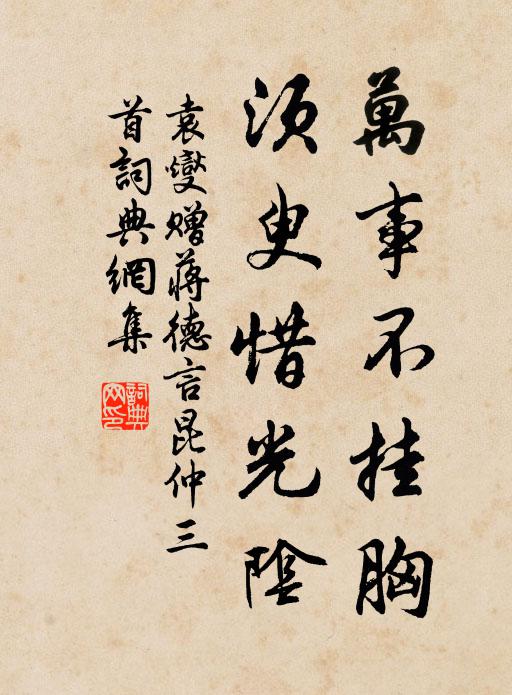 萬事不挂胸
須臾惜光陰
袁燮贈蔣德言昆仲三
首詞典網集
詞典
网印